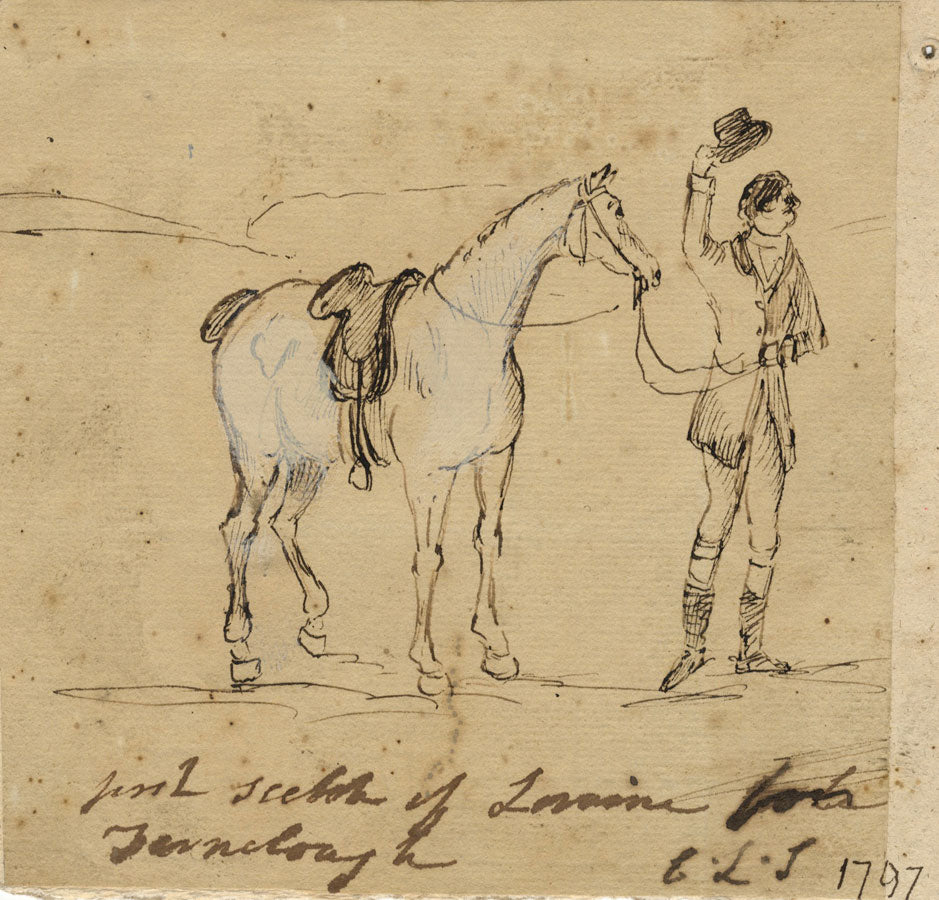 first scetch of Loraine
Fernelough
C. L. S 1797